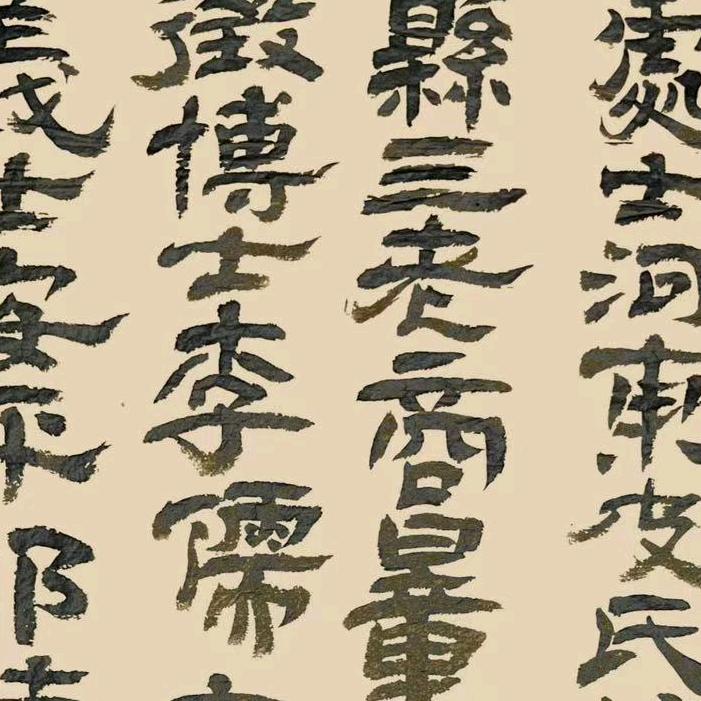 處士河東皮氏
縣三老商量
徵博士李儒
義士安平